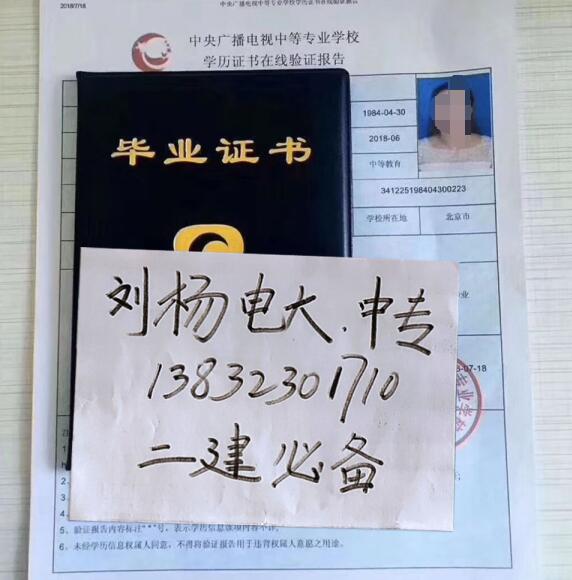 2018/7/18
中央广播电视中等专业学校
学历证书在线验证报告
毕业证书
1984-04-30
2018-06
中等教育
341225198404300223
学校所在地 北京市
刘杨电大.中专
13832301710
二建必备
5、验证报告内容标注“*”号，表示学历信息该项内容不详。
6、未经学历信息权属人同意，不得将验证报告用于违背权属人意愿之用途。